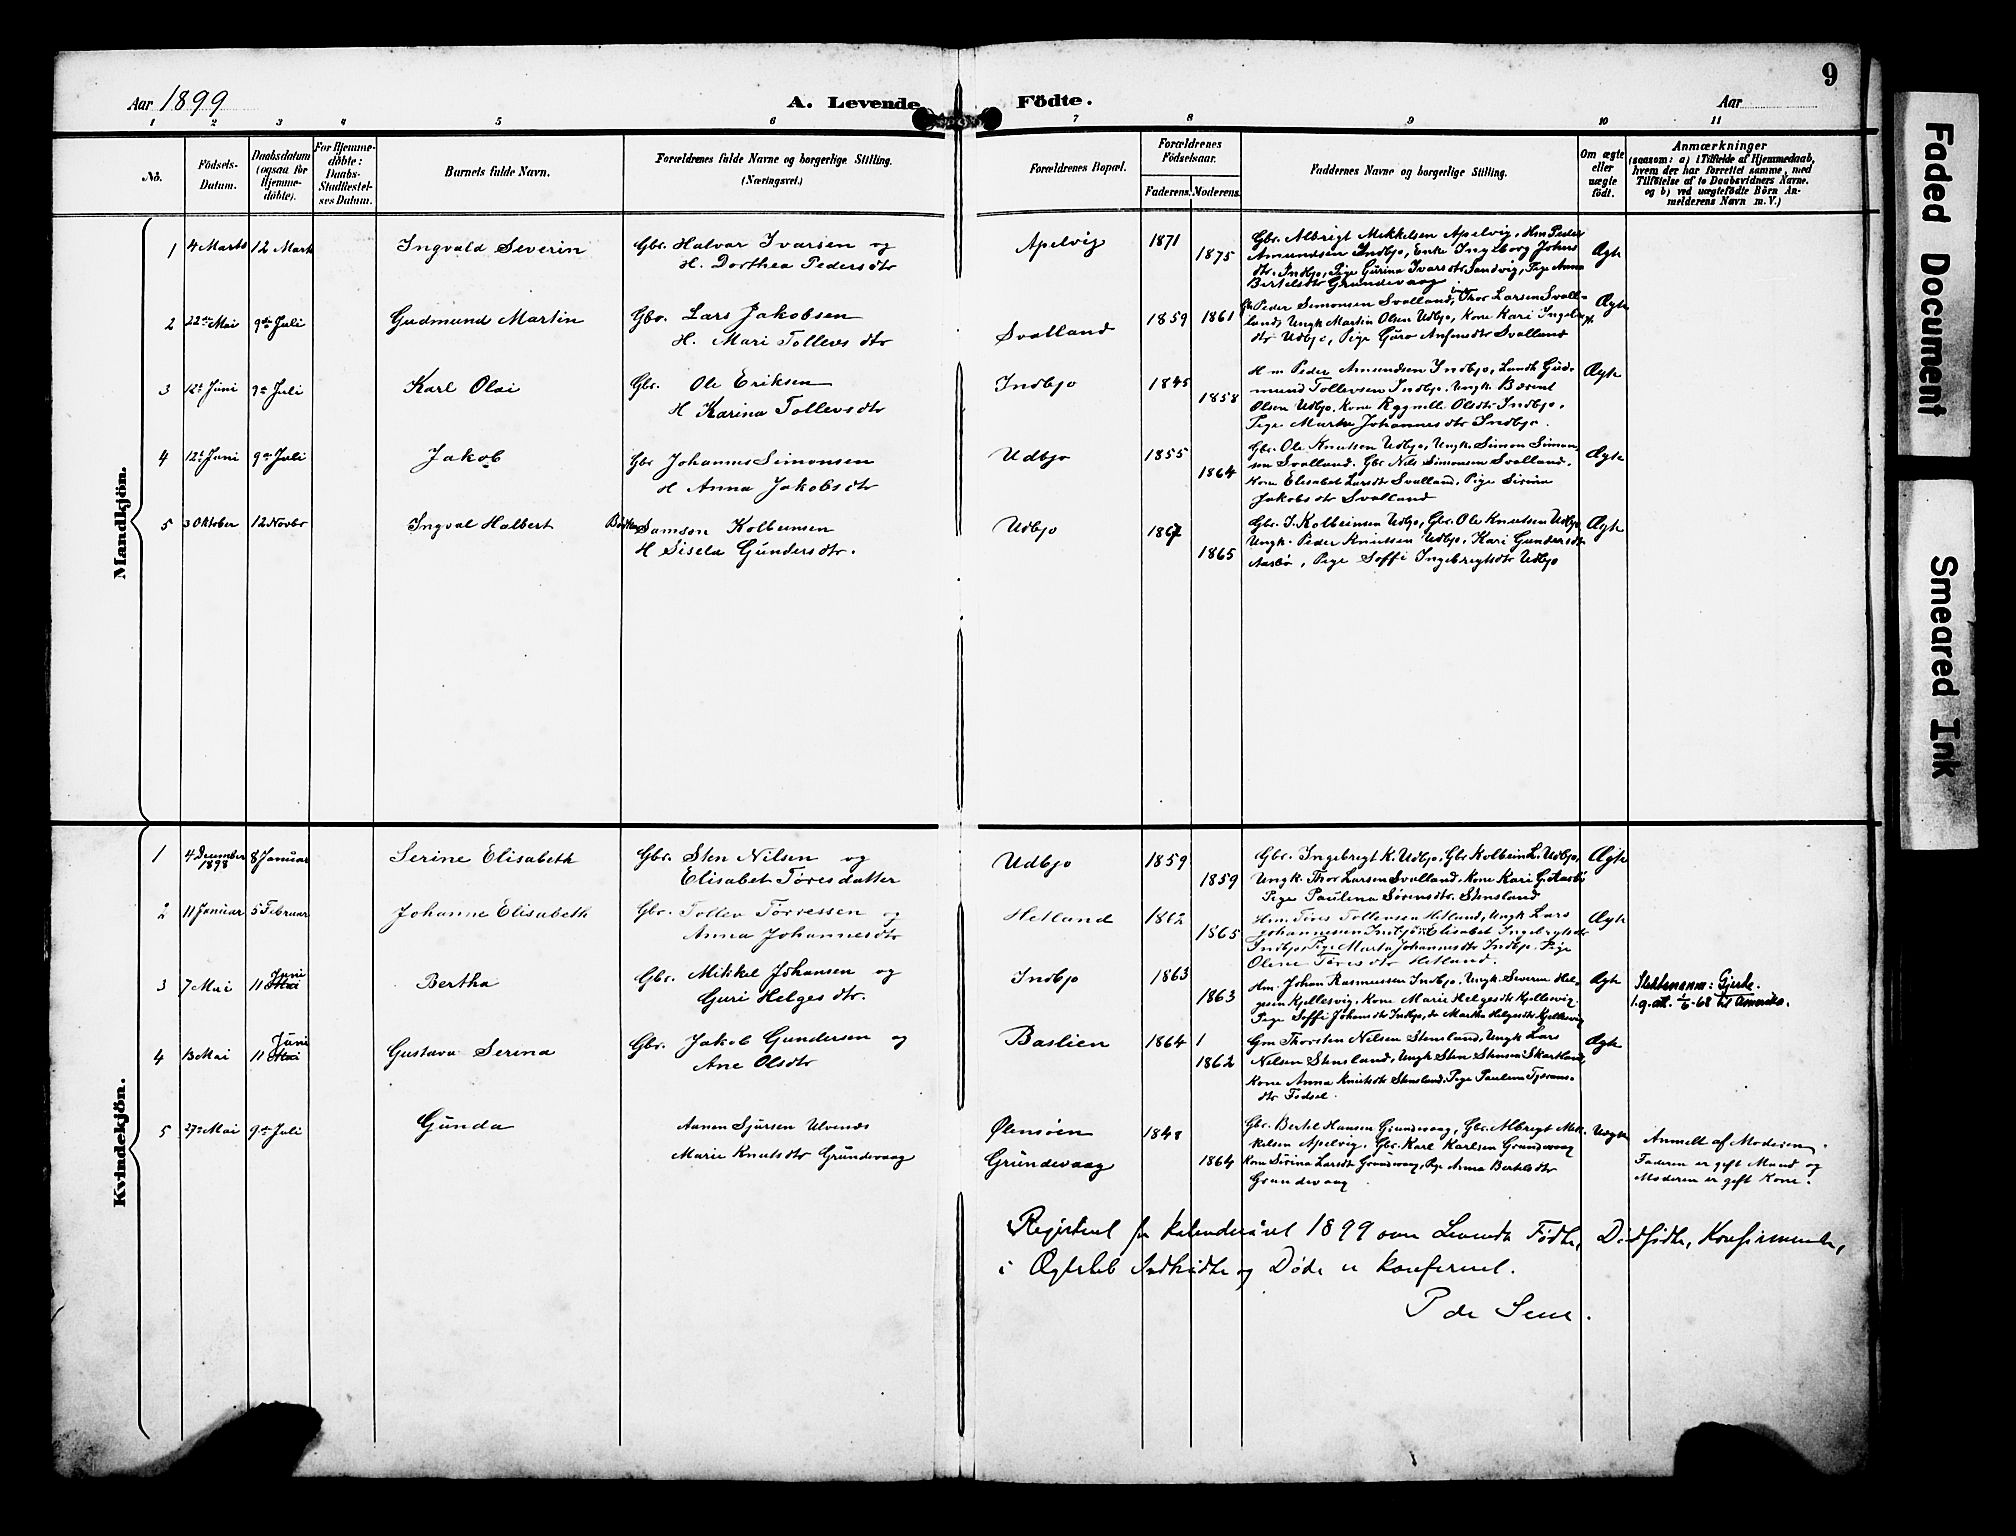 9
Aar 1899
A. Levende Födte.
Aar
1 2 3 4 5 6 7 8 9 10 11
No.
Födsels-Datum.
Daabsdatum (ogsaa for Hjemme-döbte).
For Hjemme-döbte: Daabs-Stadfæstel-ses Datum.
Barnets fulde Navn.
Forældrenes fulde Navne og borgerlige Stilling. (Næringsvei.)
Forældrenes Bopæl.
Forældrenes Födselsaar.
Faderens. Moderens.
Faddernes Navne og borgerlige Stilling.
Om ægte eller uægte födt.
Anmærkninger
(saasom: a) i Tilfælde af Hjemmedaab,
hvem der har forrettet samme, med
Tilföielse af to Daabsvidners Navne.
og b) ved uægtefödte Börn An-
melderens Navn m. V.)
Mandkjön.
1 4 Marts 12 Mart Ingvald Severin Gbr. Halvar Ivarsen og
H. Dorthea Pedersdtr
Apelvig 1871 1875
Gbr. Albrigt Mikkelsen Apelvig, Hm Peder
Amundsen Indbjo, Enke Ingeborg Johns
dtr. Indbjo, Pige Gurina Ivarsdtr Sandvig, Pige Anna
Bertelsdtr Grundevaag
Ægte
2 22de Mai 9de Juli Gudmund Martin Gbr. Lars Jakobsen
H. Mari Tollevsdtr
Svolland 1859 1861
Peder Simonsen Svalland, Thor Larsen Svall-
land, Ungk Martin Olsen Udbjo, Kone Kari Ingebr
dtr Udbjo, Pige Guro Anfinsdtr Svalland
Ægte
3 12te Juni 9de Juli Karl Olai Gbr. Ole Eriksen
H Karina Tollevsdtr
Indbjo 1845 1858
Hm Peder Amundsen Indbjo, Gud-
mund Tollevsen Indbjo. Ungk Bærent
Olsen Udbjo. Kone Olsdtr Indbjo.
Pige Marta Johannesdtr Indbjo.
Ægte
4 12te Juni 9de Juli Jakob Gbr Johannes Simonsen
H Anna Jakobsdtr
Udbjo 1855 1864
Gbr. Ole Knutsen Udbjo, Ungk. Simon Simon-
sen Svalland. Gbr Nils Simonsen Svalland.
Kone Elisabet Larsdtr Svalland, Pige Sirina
Jakobsdtr Svalland
Ægte
5 3 Oktober 12 Novbr Ingval Halbert Samson Kolbeinsen
H Sisela Gundersdtr.
Udbjo 1867 1865
Gbr. I. Kolbeinsen Udbjo, Gbr. Ole Knutsen Udbjo
Ungk. Peder Knutsen Udbjo. Kari Gundersdtr
Aasbø, Pige Soffi Ingebregtsdtr Udbjo
Ægte
Kvindekjön.
1 4 December 1898 8 Januar Serine Elisabeth Gbr. Sten Nilsen og
Elisabet Tøresdatter
Udbjo 1859 1859
Gbr. Ingebregt K. Udbjo, Gbr Kolbein L. Udbjo,
Ungk. Thor Larsen Svalland, Kone Kari G. Aasbø
Pige Paulina Sørensdtr. Stensland
Ægte
2 11 Januar 5 Februar Johanne Elisabeth Gbr. Tollev Tørressen og
Anna Johannesdtr
Hetland 1862 1865
Hm. Tøres Tollevsen Hetland, Ungk Lars
Johannessen Indbjo, Elisabet Ingebrigtsdtr
Indbjo, Pige Marta Johannesdtr Indbjo, Pige
Oline Tøresdtr Hetland.
Ægte
3 7 Mai 11 Juni Mai Bertha Gbr. Mikkel Johansen og
Guri Helgesdtr.
Indbjo 1863 1863
Hm. Johan Rasmussen Indbjo, Ungk. Severin Hel-
gesen Kjellesvig, Kone Marie Helgesdtr Kjellesvig.
Pige Soffi Johansdtr Indbjo, do Martha Helgesdtr Kjellesvig
Ægte
Slektsnavn: Gjerde.
1/6-68 til Amerika.
4 13 Mai 11 Juni Mai Gustava Serina Gbr. Jakob Gundersen og
Ane Olsdtr
Baslien 1864 1862
Gm Thorsten Nilsen Stensland, Ungk Lars
Nilsen Stensland, Ungk Sten Stensen Skartland,
Kone Anna Knutsdtr Stensland. Pige Paulina Tjerans-
dtr Fodsel.
Ægte
5 27de Mai 9de Juli Gunda Aanen Sjursen Ulvenes
Marie Knutsdtr Grundevaag
Ølensøen
Grundevaag
1848 1864
Gbr. Bertel Hansen Grundevaag, Gbr. Albregt Mik-
kelsen Apelvig. Gbr. Karl Karlsen Grundevaag
Kone Sirina Larsdtr Grundevaag, Pige Anna Bertelsdtr
Grundevaag
Uægte
Anmelt af Moderen.
Faderen er gift Mand og
Moderen er gift Kone.
Registeret for kalenderåret 1899 over Levende Fødte, Dødfødte, Konfirmerte,
i Ægteskab Indtrådte og Døde er konfereret.
P de Seue.
Faded Document
Smeared Ink